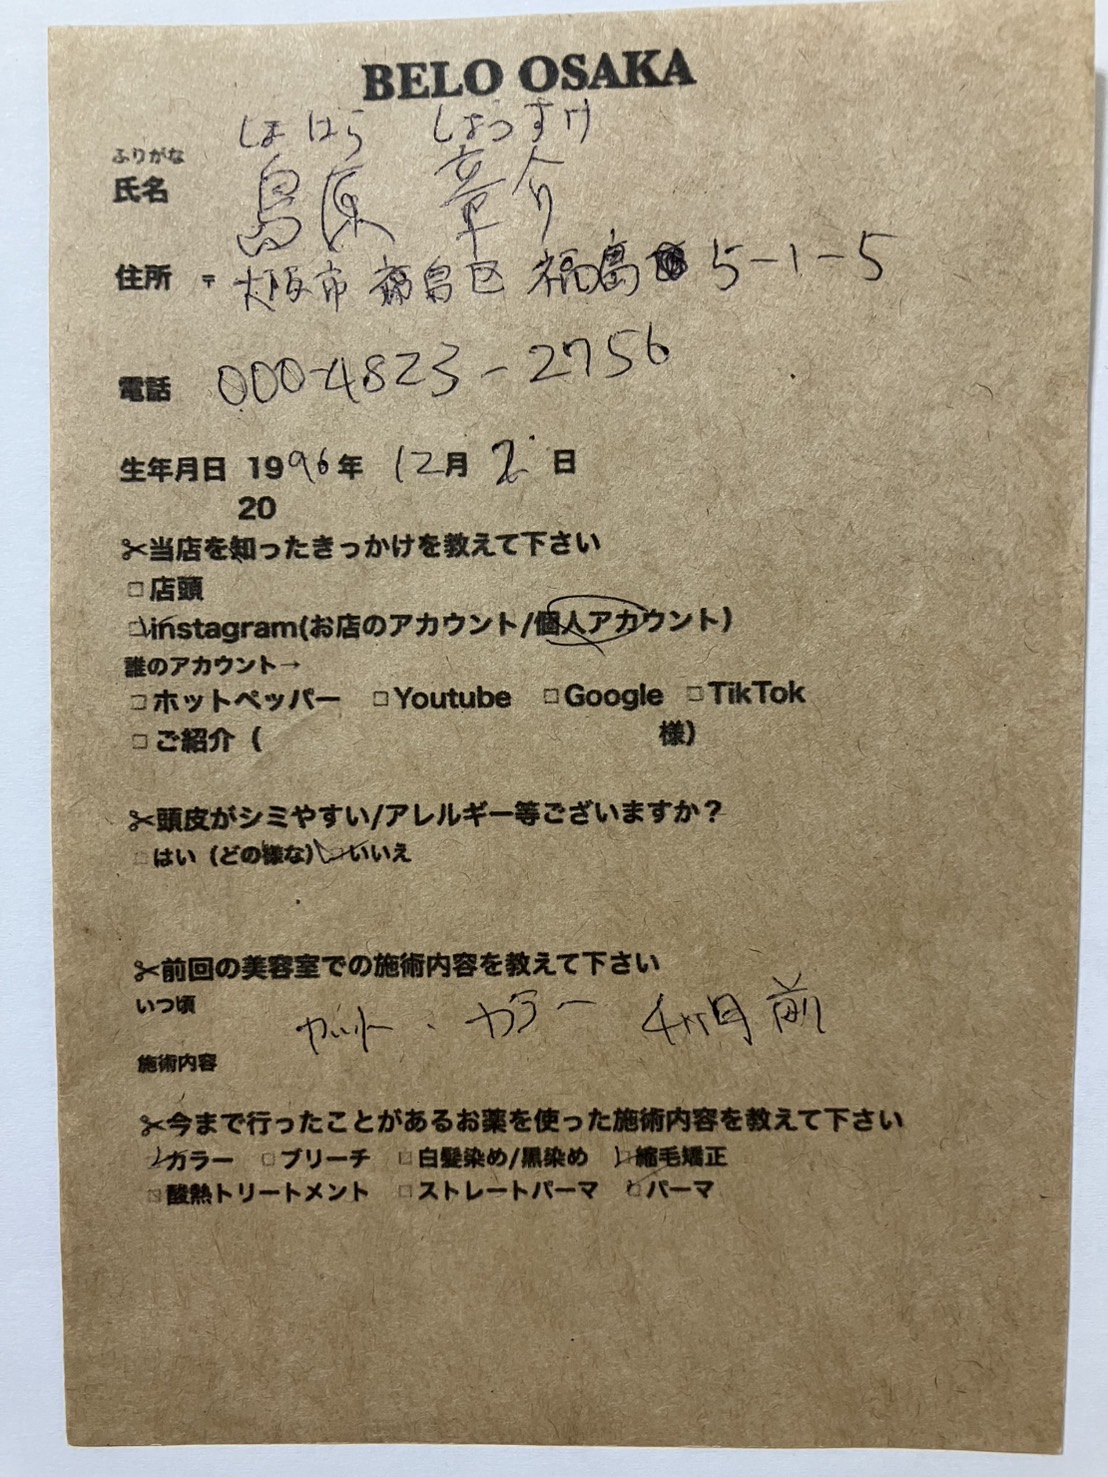 BELO OSAKA
しまはら しょうすけ
ふりがな
氏名 島原 章介
住所 〒 大阪市 福島区 福島 5-1-5
電話 000-4823-2756
生年月日 1996年 12月 2日
20
✂当店を知ったきっかけを教えて下さい
□店頭
□instagram(お店のアカウント/個人アカウント)
誰のアカウント→
□ホットペッパー □Youtube □Google □TikTok
□ご紹介( 様)
✂頭皮がシミやすい/アレルギー等ございますか?
□はい(どの様な) □いいえ
✂前回の美容室での施術内容を教えて下さい
いつ頃
カット・カラー 4ヶ月前
施術内容
✂今まで行ったことがあるお薬を使った施術内容を教えて下さい
□カラー □ブリーチ □白髪染め/黒染め □縮毛矯正
□酸熱トリートメント □ストレートパーマ □パーマ